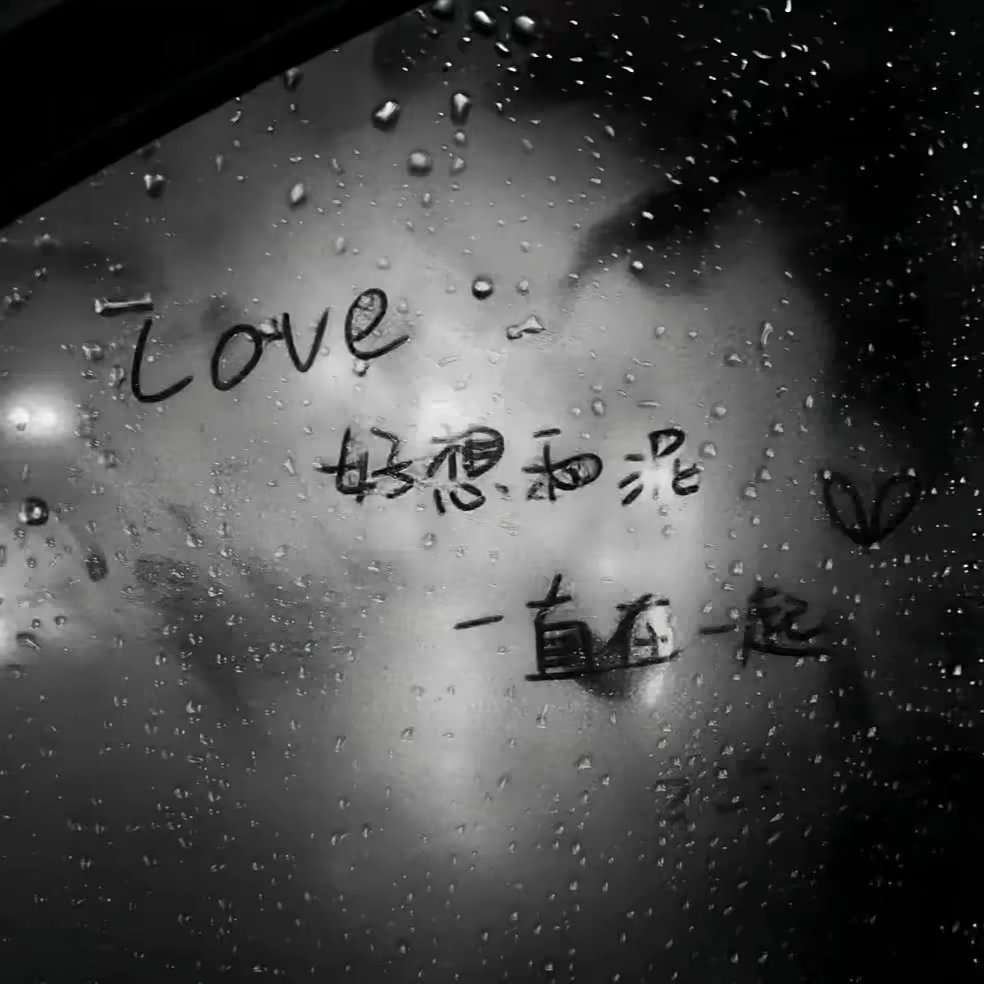 Love
好想和泥
一直在一起